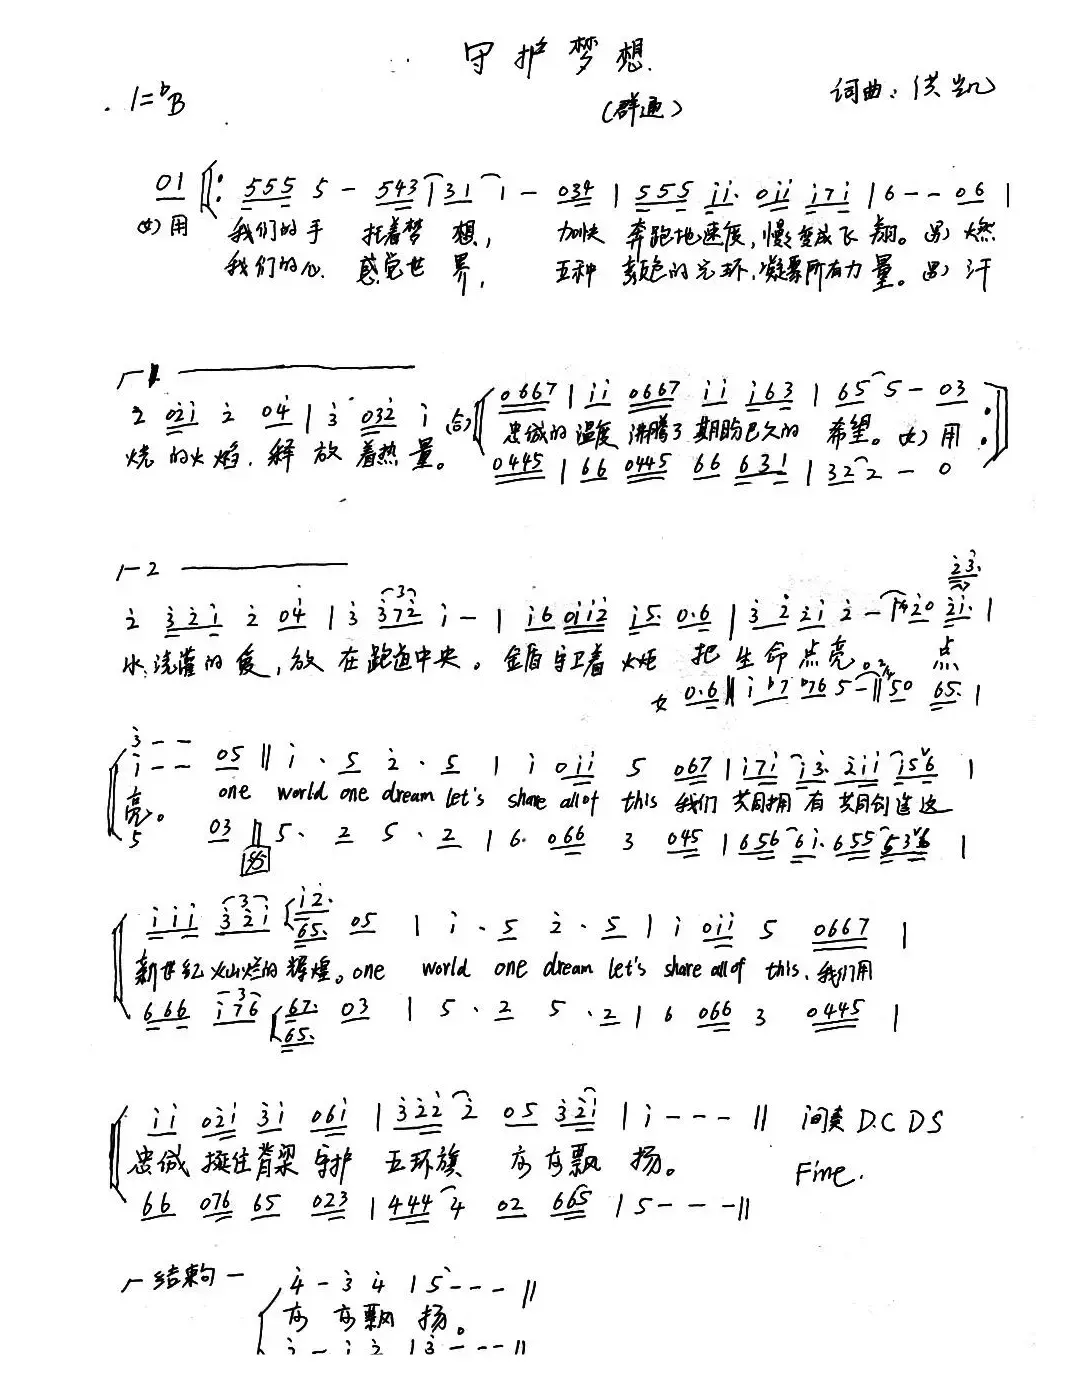 守护梦想
1=bB
(群通)
词曲：洪凯
01 ‖: 555 5 - 543 | 31 1 - 034 | 555 i i. 0ii i7i | 6 - - 06 |
女)用 我们的手 托着梦想， 加快奔跑地速度，慢变成飞翔。男)燃
我们的心 感觉世界， 五种颜色的光环，凝聚所有力量。男)汗
1
0667 | ii 0667 ii i63 | 65 5 - 03
2 02i 2 04 | 3 032 i (合)
烧的火焰，释放着热量。 忠诚的温度沸腾了期盼已久的希望。女)用 :
0445 | 66 0445 66 631 | 32 2 - 0
2
23.
2 32i 2 04 | 3 372 i - | i6 0ii2 i5. 0.6 | 3 2 2i 2 - 20 2i. |
水浇灌的爱，放在跑道中央。金盾守卫着火炬 把生命点亮。 点
女 0.6 ‖ i b7 b76 5 - ‖ 50 65. |
3 - -
i - - 05 ‖ i . 5 2 . 5 | i 0ii 5 067 | i7i i3. 2ii i56 |
亮。 one world one dream let's share all of this 我们共同拥有共同创造这
5 03 ‖ 5 . 2 5 . 2 | 6. 066 3 045 | 656 6i. 655 536 |
iii 32i i2. 65. 05 | i . 5 2 . 5 | i 0ii 5 0667 |
新世纪火山烂的辉煌。one world one dream let's share all of this. 我们用
666 i76 67. 03 | 5 . 2 5 . 2 | 6 066 3 0445 |
65.
ii 02i 3i 06i | 322 2 05 32i | i - - - ‖ 间奏 D.C D S
忠诚挺住脊梁守护五环旗 方方飘扬。 Fine.
66 076 65 023 | 444 4 02 665 | 5 - - - ‖
结束句
4 - 3 4 | 5 - - - ‖
方方飘扬。
i - i 2 | 3 - - - ‖